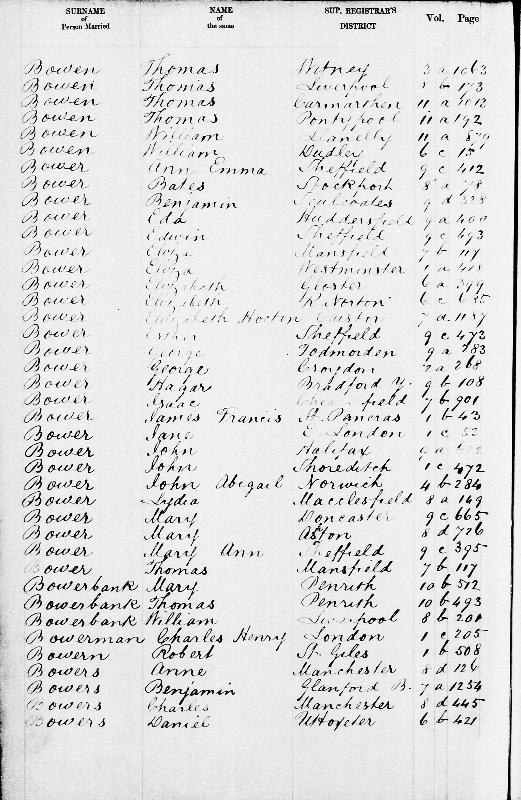 SURNAME of Person Married NAME of the same SUP. REGISTRAR'S DISTRICT Vol. Page
Bowen Thomas Witney 3 a 1063
Bowen Thomas Liverpool 8 b 173
Bowen Thomas Carmarthen 11 a 1012
Bowen Thomas Pontypool 11 a 192
Bowen William Llanelly 11 a 879
Bowen William Dudley 6 c
Bower Ann Emma Sheffield 9 c 412
Bower Bates Stockport 8 a 78
Bower Benjamin Sculcoates 9 d 328
Bower Eda Huddersfield 9 a 400
Bower Edwin Sheffield 9 c 493
Bower Eliza Mansfield 7 b 117
Bower Eliza Westminster 1 a
Bower Elizabeth Gloster 6 a 379
Bower Elizabeth K. Norton 6 c
Bower Elizabeth Hocten Castor 7 d 1157
Bower Esther Sheffield 9 c 473
Bower George Todmorden 9 a 283
Bower George Croydon 2 a 268
Bower Hagar Bradford Y. 9 b 108
Bower Isaac field 7 b 901
Bower James Francis St. Pancras 1 b 43
Bower Jane E. London 1 c 53
Bower John Halifax 9 a
Bower John Shoreditch 1 c 472
Bower John Abigail Norwich 4 b 284
Bower Lydia Macclesfield 8 a 149
Bower Mary Doncaster 9 c 665
Bower Mary Aston 8 d 726
Bower Mary Ann Sheffield 9 c 395
Bower Thomas Mansfield 7 b 117
Bowerbank Mary Penrith 10 b 512
Bowerbank Thomas Penrith 10 b 493
Bowerbank William Liverpool 8 b 201
Bowerman Charles Henry London 1 c 205
Bowern Robert St. Giles 1 b 508
Bowers Anne Manchester 8 d 126
Bowers Benjamin Glanford B. 7 a 1254
Bowers Charles Manchester 8 d 445
Bowers Daniel Uttoxeter 6 b 421